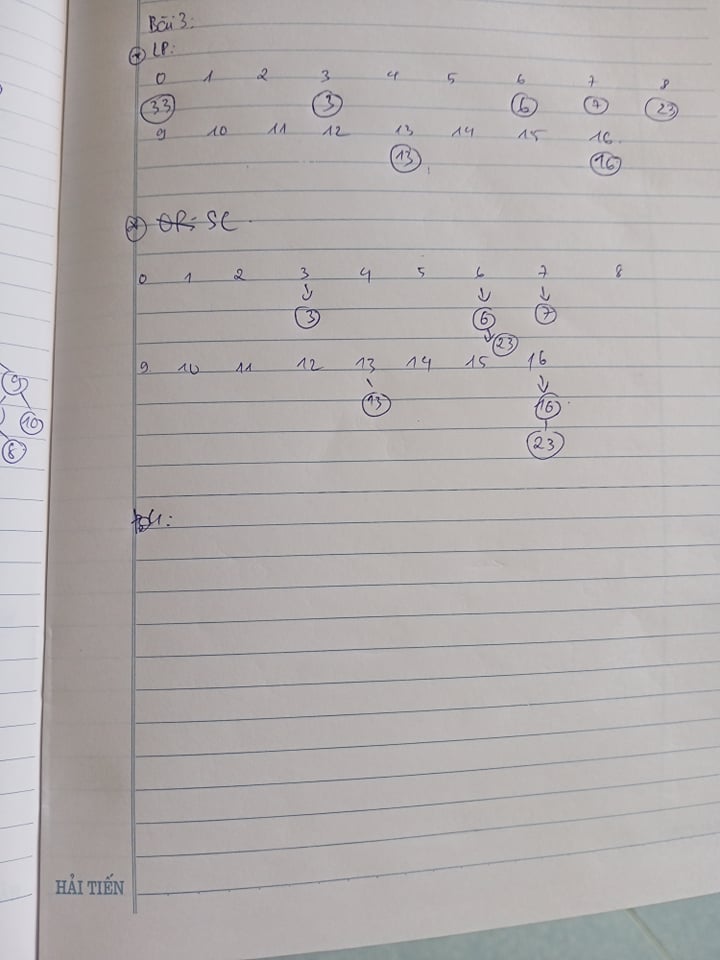 Bài 3:
* LP:
0 1 2 3 4 5 6 7 8
33 3 6 7 23
9 10 11 12 13 14 15 16
13 16
* OR: SC
0 1 2 3 4 5 6 7 8
3 6 7
23
9 10 11 12 13 14 15 16
13 16
23
B4:
9
10
8
HẢI TIẾN